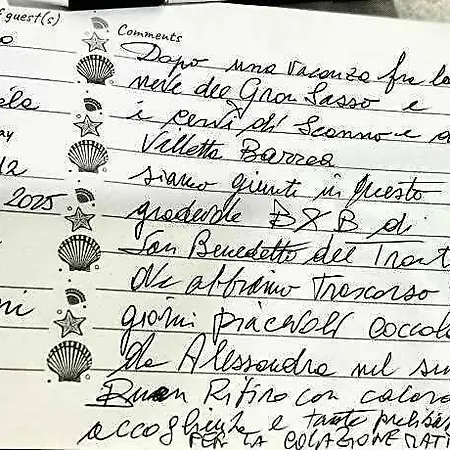 f guest(s)
Comments
Dopo una vacanza fra la
neve del Gran Sasso e
i cervi di Scanno e
Villetta Barrea
siamo giunti in questo
gradevole B&B di
San Benedetto del Tront
ove abbiamo trascorso
giorni piacevoli coccol
da Alessandra nel su
Buon Ritiro con caloro
accoglienza e tante preliba
PER LA COLAZIONE MATT
ay
12
2025